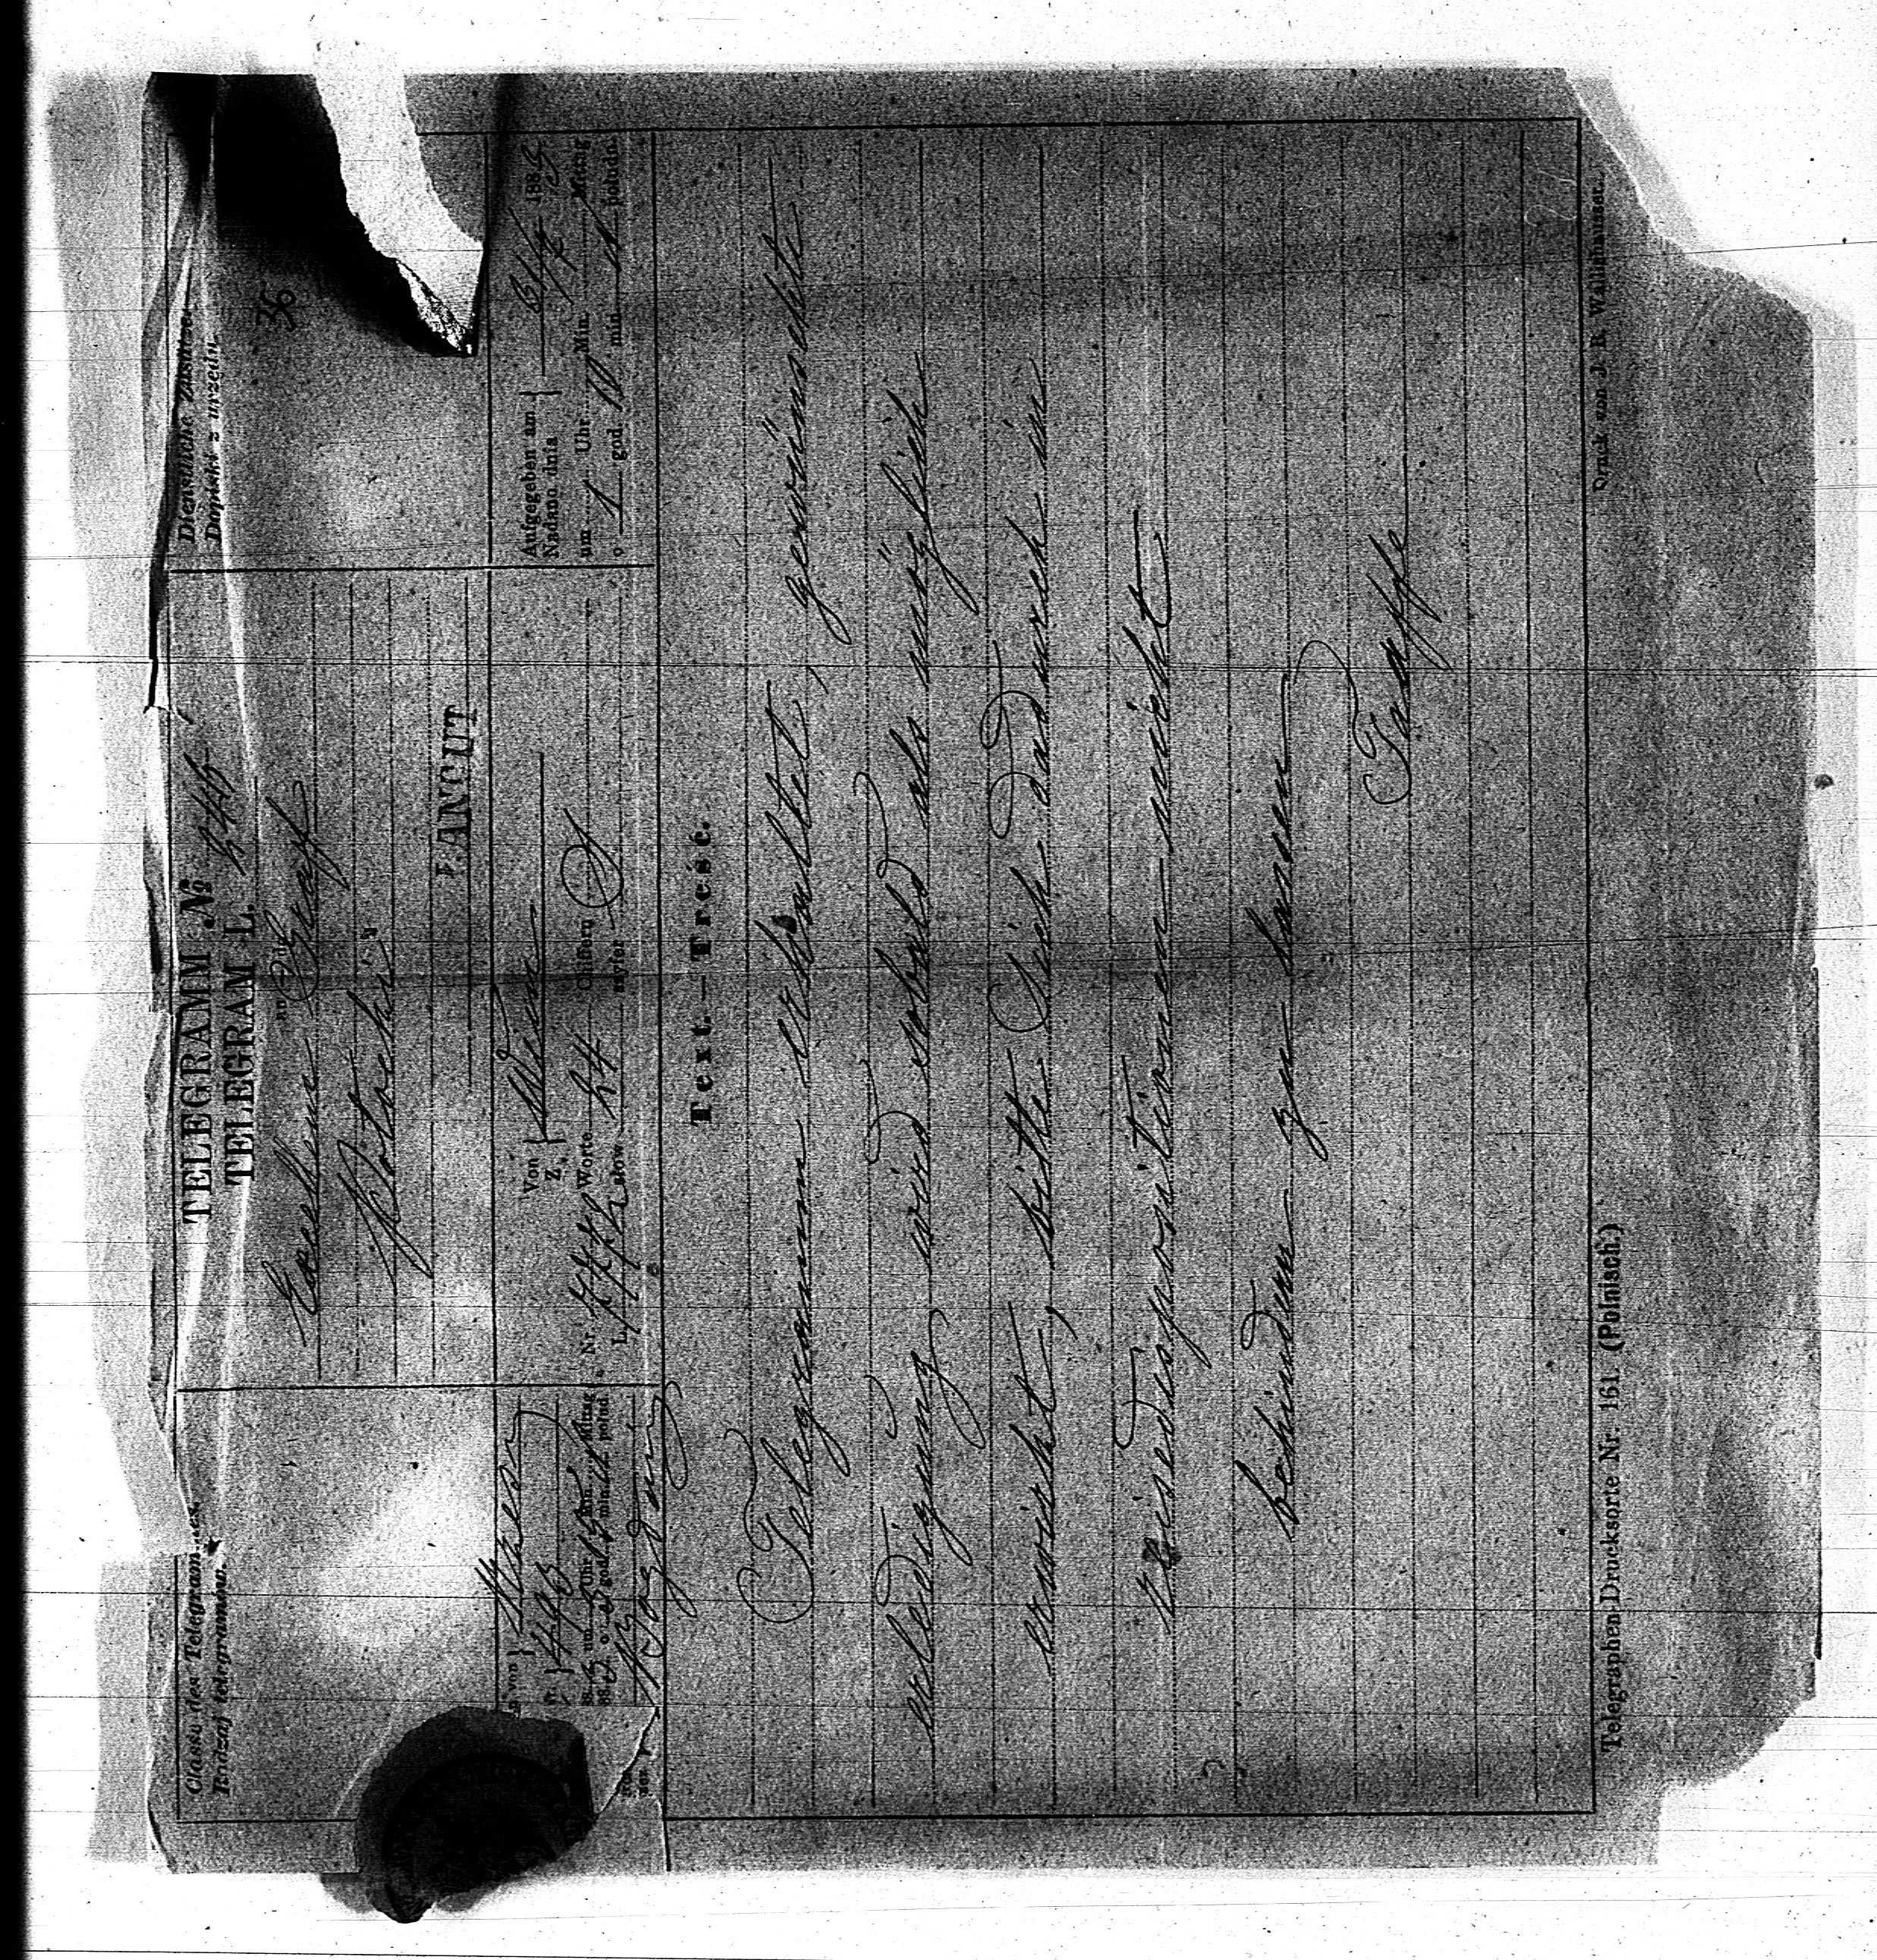 Classe des Telegrammes.
Rodzaj telegramów.
TELEGRAMM №
TELEGRAM L.
Dienstliche Zusätze.
Dopiski z urzędu.
36
an
Excellenz Graf
Potocki
ŁANCUT
Von
Z
Wien
Nr.
L.
Worte 24
słów
Ziffern
szyfer
Aufgegeben am
Nadano dnia
188
um Uhr Min. Mittag
o 1 god. 10 min. połudn.
Text. — Treść.
Telegramm erhaltet, gewünschte
erledigung wird sobald als möglich
erwirkt, bitte Sich dadurch in
reisedispositionen nicht
behindern zu lassen
Taaffe
Telegraphen-Drucksorte Nr. 161. (Polnisch.)
Druck von J. B. Wallishausser.